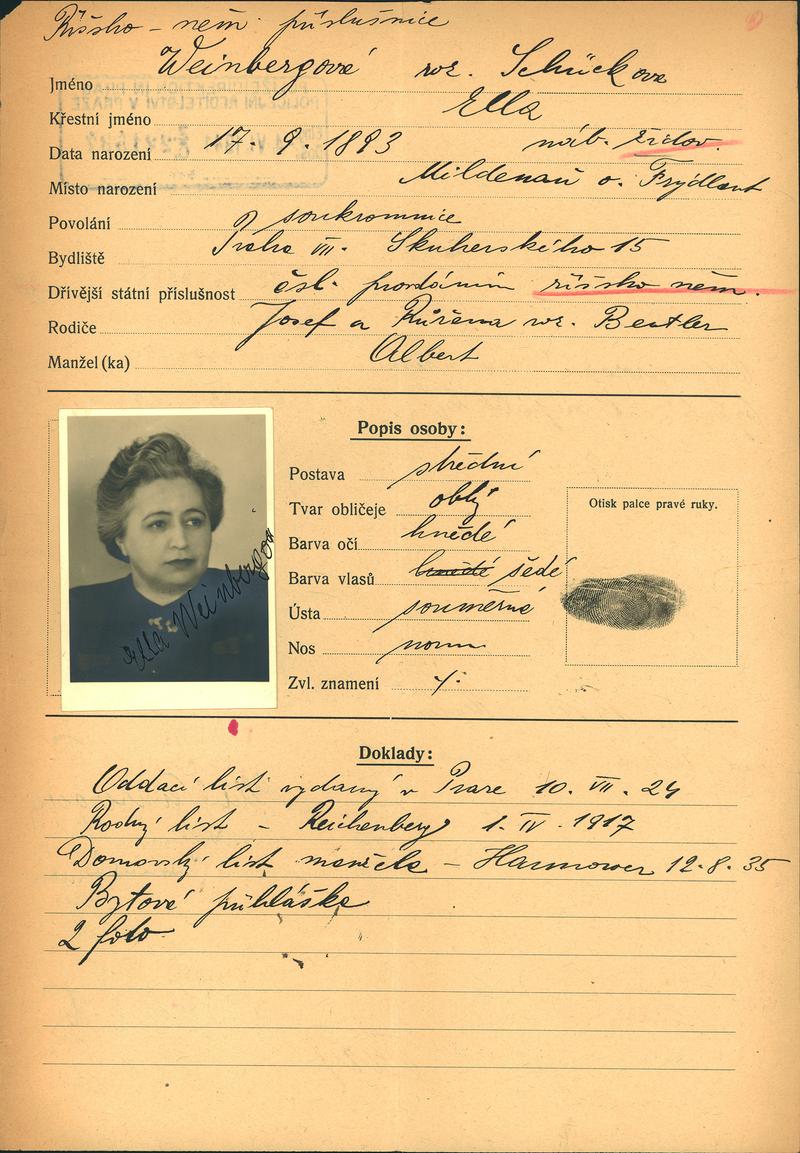 Říšsko - něm. příslušnice
Jméno Weinbergová roz. Schück ova
Křestní jméno Ella
Data narození 17. 9. 1893 náb. židov.
Místo narození Mildenau o. Frýdlant
Povolání soukromnice
Bydliště Praha VII. Skuherského 15
Dřívější státní příslušnost čsl. prov­dáním říšsko něm.
Rodiče Josef a Růžena roz. Beutler
Manžel (ka) Albert
Popis osoby:
Postava střední
Tvar obličeje oblý
Barva očí hnědé
Barva vlasů hnědé šedé
Ústa souměrné
Nos norm
Zvl. znamení
Otisk palce pravé ruky.
Ella Weinbergova
Doklady:
Oddací list vydaný v Praze 10. VII. 24
Rodný list - Reichenberg 1. IV. 1917
Domovský list manžela - Hannower 12. 8. 35
Bytové přihláška
2 foto